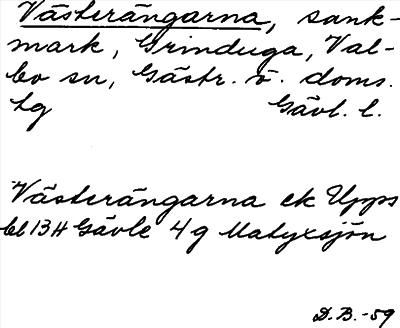 Västerängarna, sank-
mark, Grinduga, Val-
bo sn, Gästr. ö. doms.
lg Gävl. l.
Västerängarna ek Upps
bl 13H Gävle 4g Matyxsjön
D.B.-59